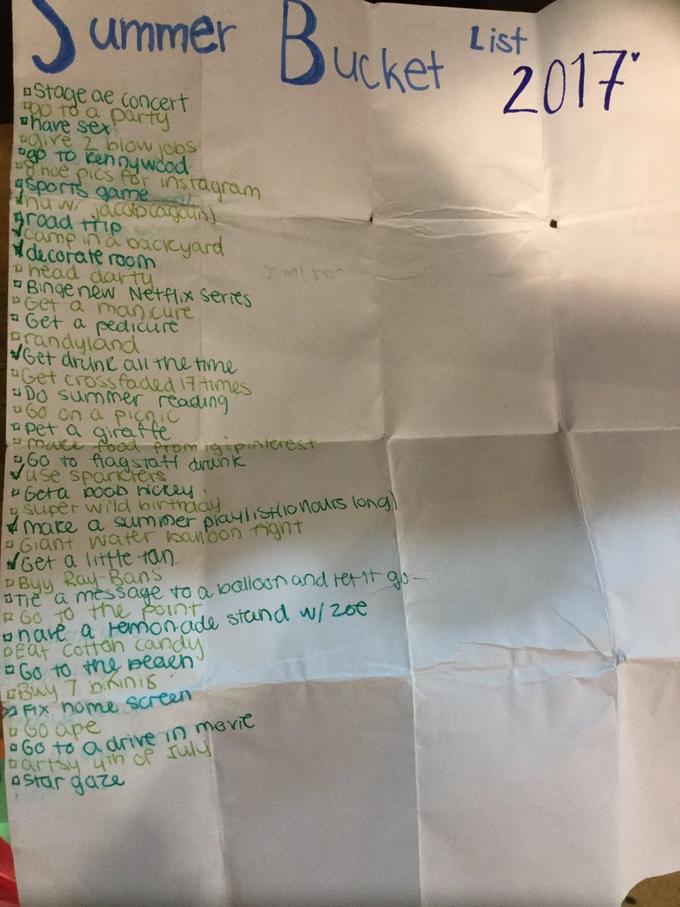 Summer Bucket List
2017
stage ae concert
go to a party
have sex
give 2 blow jobs
go to kennywood
pics for instagram
sports game
w/ jacob (again)
road trip
camp in a backyard
decorate room
head darty
Binge new Netflix series
Get a manicure
Get a pedicure
randyland
Get drunk all the time
Get crossfaded 17 times
Do summer reading
Go on a picnic
pet a giraffe
make food from ig + pinterest
Go to flagstaff drunk
use sparklers
Get a boob hickey
super wild birthday
make a summer playlist (10 hours long)
Giant water balloon fight
Get a little tan
Buy Ray-Bans
Tie a message to a balloon and let it go
Go to the point
have a lemonade stand w/ zoe
Eat cotton candy
Go to the beach
Buy 7 bikinis
Fix home screen
Go ape
Go to a drive in movie
artsy 4th of July
star gaze